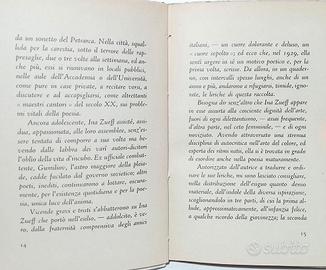 da un sonetto del Petrarca. Nella città, squal-
lida per la carestia, sotto il terrore delle rap-
presaglie, due o tre volte alla settimana, ed an-
che più, essi si riunivano in locali pubblici,
nelle aule dell'Accademia o dell'Università,
come pure in case private, a recitare versi, a
discutere e ad accapigliarsi, come altrettanti
« maestri cantori » del secolo XX, sui proble-
mi vitali della poesia.
Ancora adolescente, Ina Zueff assisté, as-
sidua, appassionata, alle loro assemblee, senz'es-
sere tentata di comporre a sua volta ma be-
vendo dalle labbra dei vari autori-dicitori
l'oblio della vita d'incubo. Ex ufficiale combat-
tente, Gumiliov, l'astro maggiore della pleia-
de, cadde fucilato dal governo sovietico; altri
poeti, inediti, continuarono a lottare, oscura-
mente, per l'esistenza quotidiana e per la poe-
sia, unica luce dell'anima.
Vicende grevi e tristi s'abbatterono su Ina
Zueff che portò nell'esilio, — addolcito, è ve-
ro, dalla fraternità comprensiva degli amici
14
italiani, — un cuore dolorante e deluso, un
« cuore sepolto »; ed ecco che, nel 1929, ella
sentì sé stessa urgere un motivo poetico e, per
la prima volta, scrisse. Da allora, in un quader-
no, con intervalli spesso lunghi, anche di un
anno e più, andarono a rifugiarsi, timide, igno-
te, le liriche di questa raccolta.
Bisogna dir senz'altro che Ina Zueff appare
in esse assunta alla cosciente dignità dell'arte,
fuori di ogni dilettantismo, — assai frequente,
d'altra parte, nel ceto femminile, — e di ogni
avventatezza. Avendo serrata una strenua
disciplina di autocritica nell'arte del colore, ed
esperta del ritmo nato, ella si è trovata in grado
di esordire anche nella poesia maturamente.
Autorizzata dall'autrice a tradurre e ordina-
re le sue liriche, me ne sono lasciato consigliare,
nella distribuzione dell'esiguo ma denso mate-
riale, dall'indole della diversa ispirazione,
scaglionandolo in tre parti, di cui la prima al-
lude, approssimativamente, all'infanzia felice a
qualche ricordo della giovinezza; la seconda
15
subito